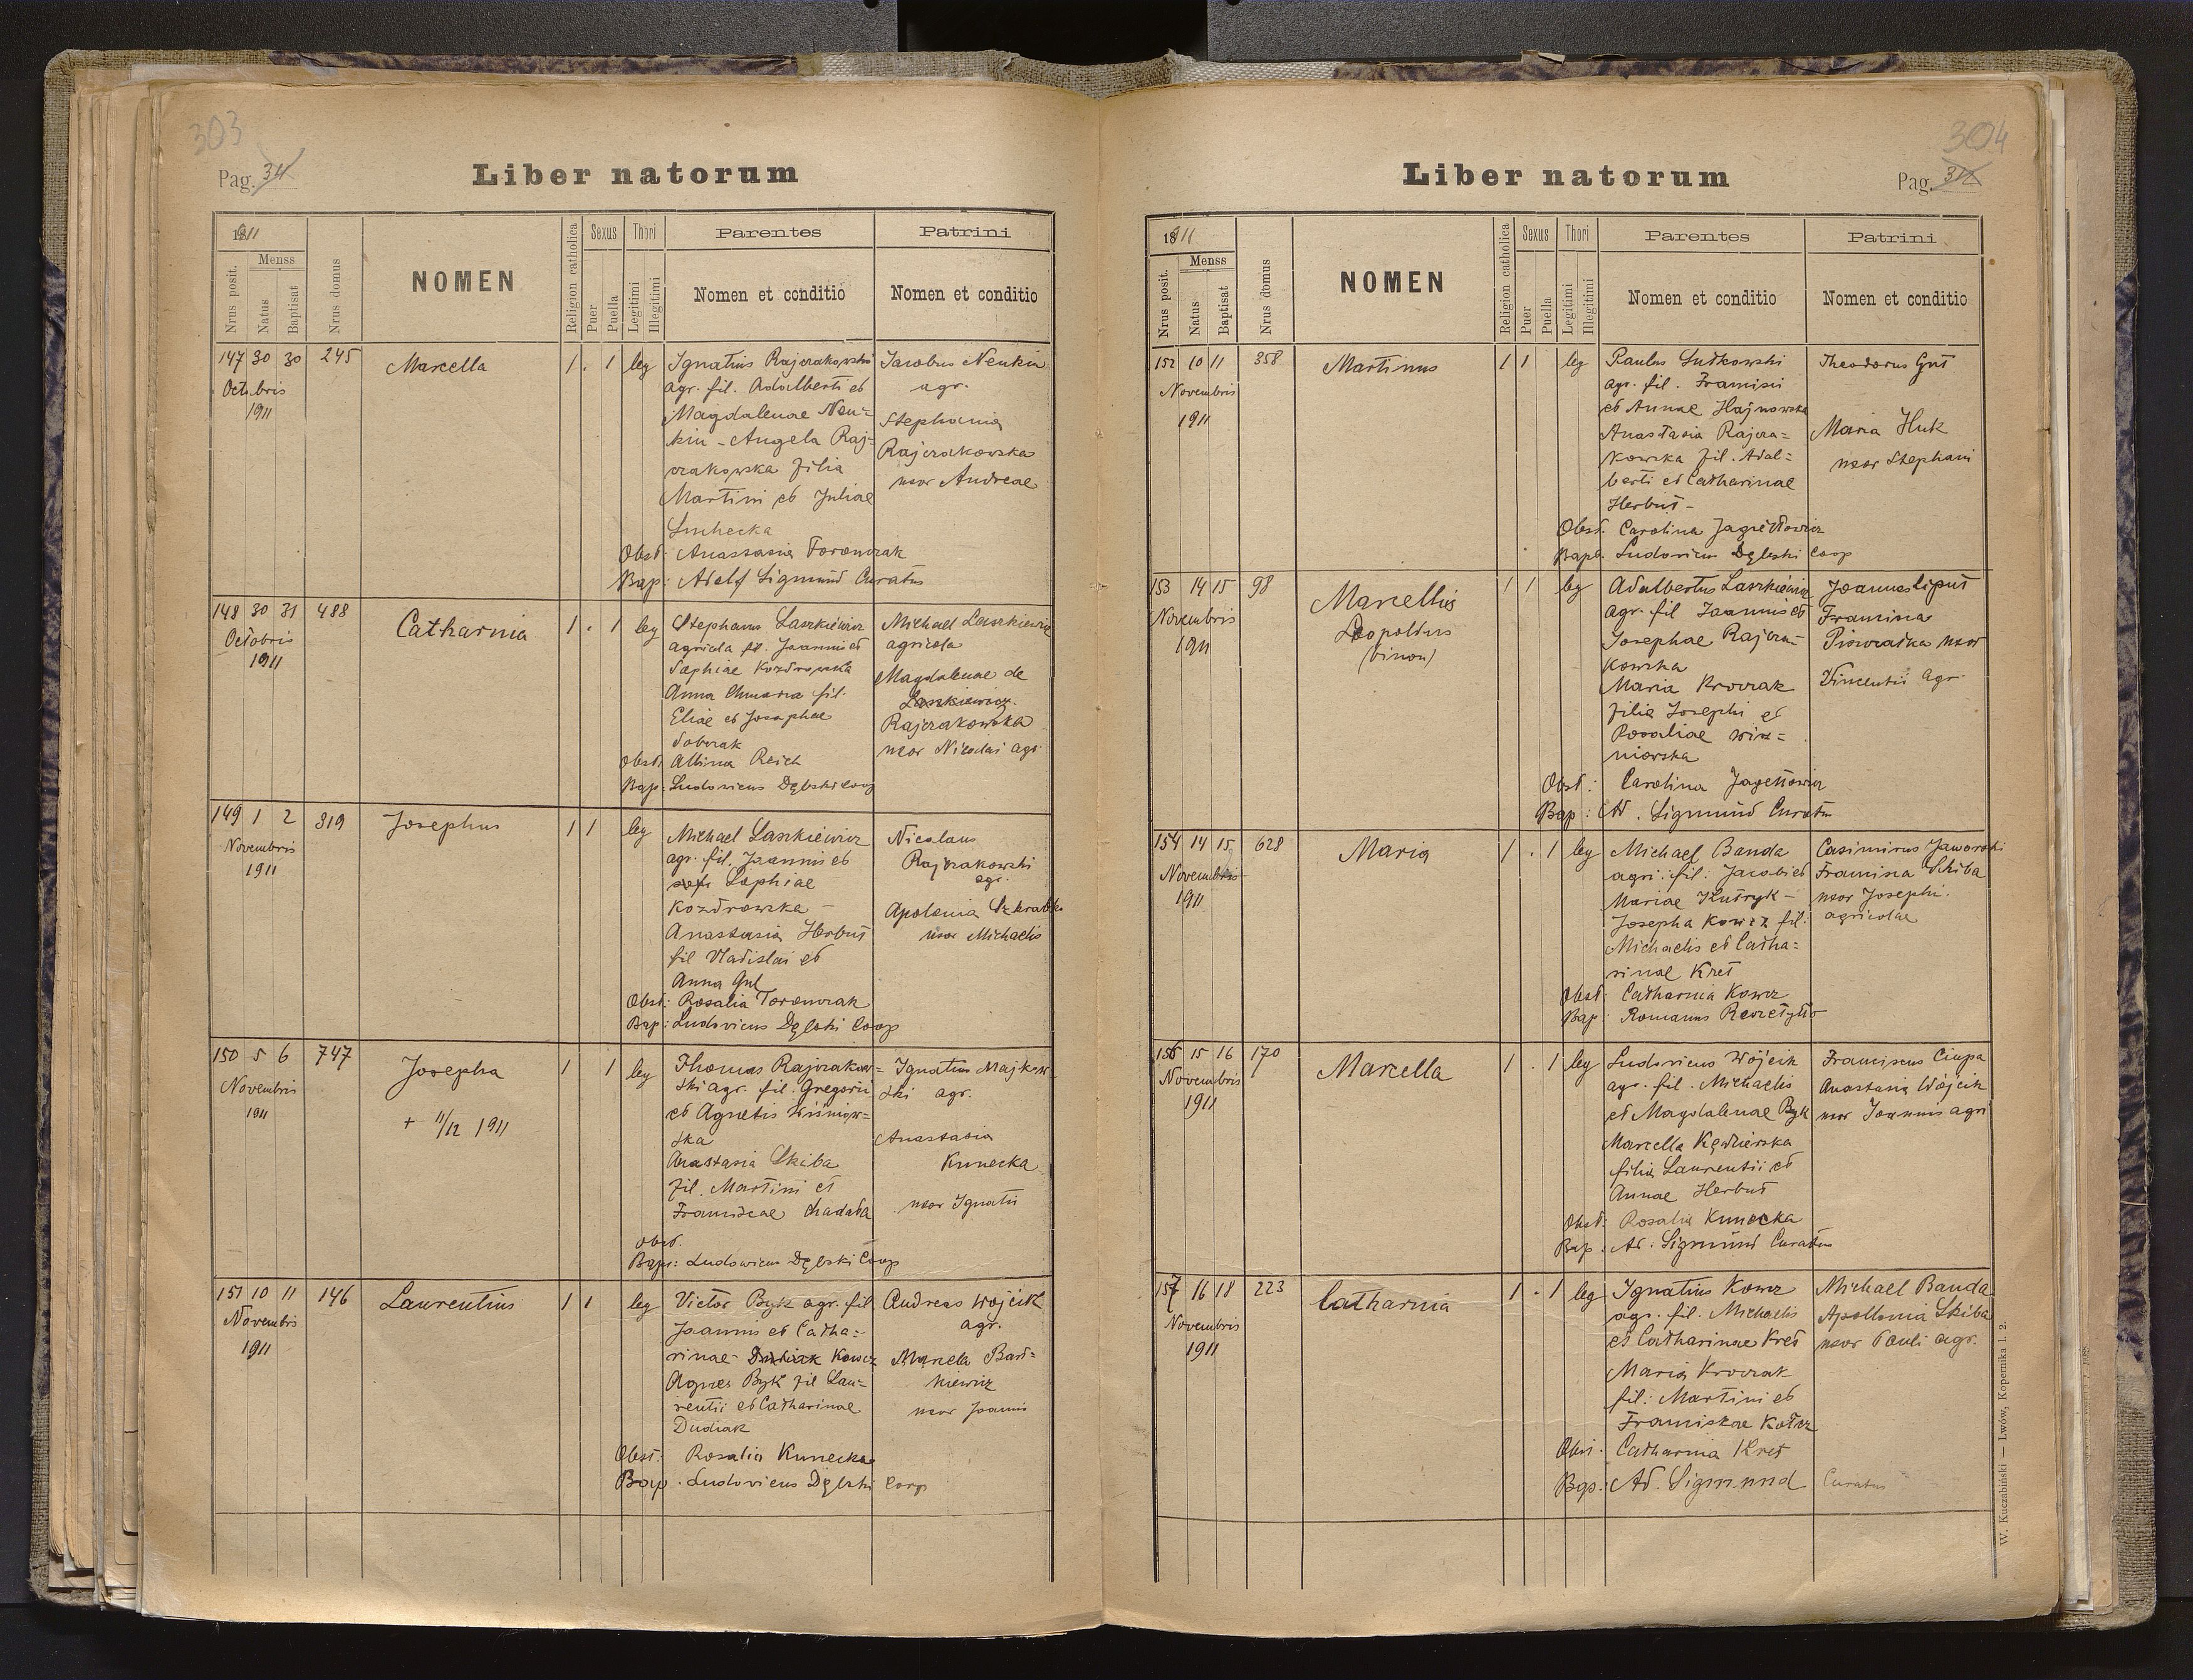 303
Pag. 311
Liber natorum
1911
Nrus posit.
Menss
Natus
Baptisat
Nrus domus
NOMEN
Religion catholica
Sexus
Puer
Puella
Thori
Legitimi
Illegitimi
Parentes
Nomen et conditio
Patrini
Nomen et conditio
147 30 30 245
Octobris
1911
Marcella
1 . 1 leg
Ignatius Rajczakowski
agr. fil. Adalberti et
Magdalenae Neu=
kin - Angela Raj=
czakowska filia
Martini et Juliae
Suchecka
Obst: Anastasia Toronczak
Bap: Adolf Sigmund Curatus
Jacobus Neukin
agr.
Stephania
Rajczakowska
uxor Andreae
148 30 31 488
Octobris
1911
Catharina
1 . 1 leg
Stephanus Laszkiewicz
agricola fil. Joannis et
Sophiae Kozdrowska
Anna
fil.
Eliae et Josephae
Sobczak
Obst: Albina Reich
Bap: Ludovicus Dębski Coop
Michael Laszkiewicz
agricola
Magdalenae de
Laszkiewicz
Rajczakowska
uxor Nicolai agr.
149 1 2 319
Novembris
1911
Josephus
1 1 leg
Michael Laszkiewicz
agr. fil. Joannis et
Sophiae
Kozdrowska -
Anastasia Herbut
fil Vladislai et
Anna Gul
Obst: Rosalia Toronczak
Bap: Ludovicus Dębski Coop
Nicolaus
Rajczakowski
agr.
Apolonia
uxor Michaelis
150 5 6 747
Novembris
1911
Josepha
+ 11/12 1911
1 1 leg
Thomas Rajczakow=
ski agr. fil. Gregorii
et Agnetis Wiśniow=
ska
Anastasia Skiba
fil. Martini et
Franciscae Chadaba
Obst.
Bap: Ludovicus Dębski Coop
Ignatius Majkow=
ski agr.
Anastasia
Kunecka
uxor Ignatii
151 10 11 146
Novembris
1911
Laurentius
1 1 leg
Victor Byk agr. fil
Joannis et Catha=
rinae Dudiak Kowcz
Agnes Byk fil Lau=
rentii et Catharinae
Dudiak
Obst. Rosalia Kunecka
Bap. Ludovicus Dębski Coop
Andreas Wojcik
agr.
Marcela Bart=
kiewicz
uxor Joannis
304
Pag. 312
Liber natorum
1911
Nrus posit.
Menss
Natus
Baptisat
Nrus domus
NOMEN
Religion catholica
Sexus
Puer
Puella
Thori
Legitimi
Illegitimi
Parentes
Nomen et conditio
Patrini
Nomen et conditio
152 10 11 358
Novembris
1911
Martinus
1 1 leg
Paulus Sutkowski
agr. fil. Francisci
et Annae Hajnowska
Anastasia Rajcza=
kowska fil. Adal=
berti et Catharinae
Herbut -
Obst. Carolina Jagiełłowicz
Bapt. Ludovicus Dębski Coop
Theodorus Gut
Maria Huk
uxor Stephani
153 14 15 98
Novembris
1911
Marcellus
Leopoldus
(binom)
1 1 leg
Adalbertus Laszkiewicz
agr. fil Joannis et
Josephae Rajcza=
kowska
Maria Kroczak
filia Josephi et
Rosaliae Wiś=
niowska
Obst: Carolina Jagiełłowicz
Bap: Ad. Sigmund Curatus
Joannes Liput
Francisca
uxor
Vincentii agr.
154 14 15 628
Novembris
1911
Maria
1 . 1 leg
Michael Banda
agri: fil: Jacobi et
Mariae Kutryk -
Josepha Kowcz fil.
Michaelis et Catha=
rinae Kret
Obst: Catharina Kowcz
Bap: Romanus
Casimirus Jaworski
Francisca Skiba
uxor Josephi
agricolae
156 15 16 170
Novembris
1911
Marcella
1 . 1 leg
Ludovicus Wójcik
agr. fil. Michaelis
et Magdalenae Byk
Marcella Kędzierska
filia Laurentii et
Annae Herbut
Obst: Rosalia Kunecka
Bap: Ad: Sigmund Curatus
Franciscus Ciupa
Anastasia Wójcik
uxor Joannis agri
157 16 18 223
Novembris
1911
Catharina
1 . 1 leg
Ignatius Kowcz
agr. fil. Michaelis
et Catharinae Kret
Maria Kroczak
fil: Martini et
Franciscae
Obst. Catharina Kret
Bap: Ad. Sigmund Curatus
Michael Banda
Apollonia Skiba
uxor Pauli agr.
W. Kuczabiński — Lwów, Kopernika l. 2.